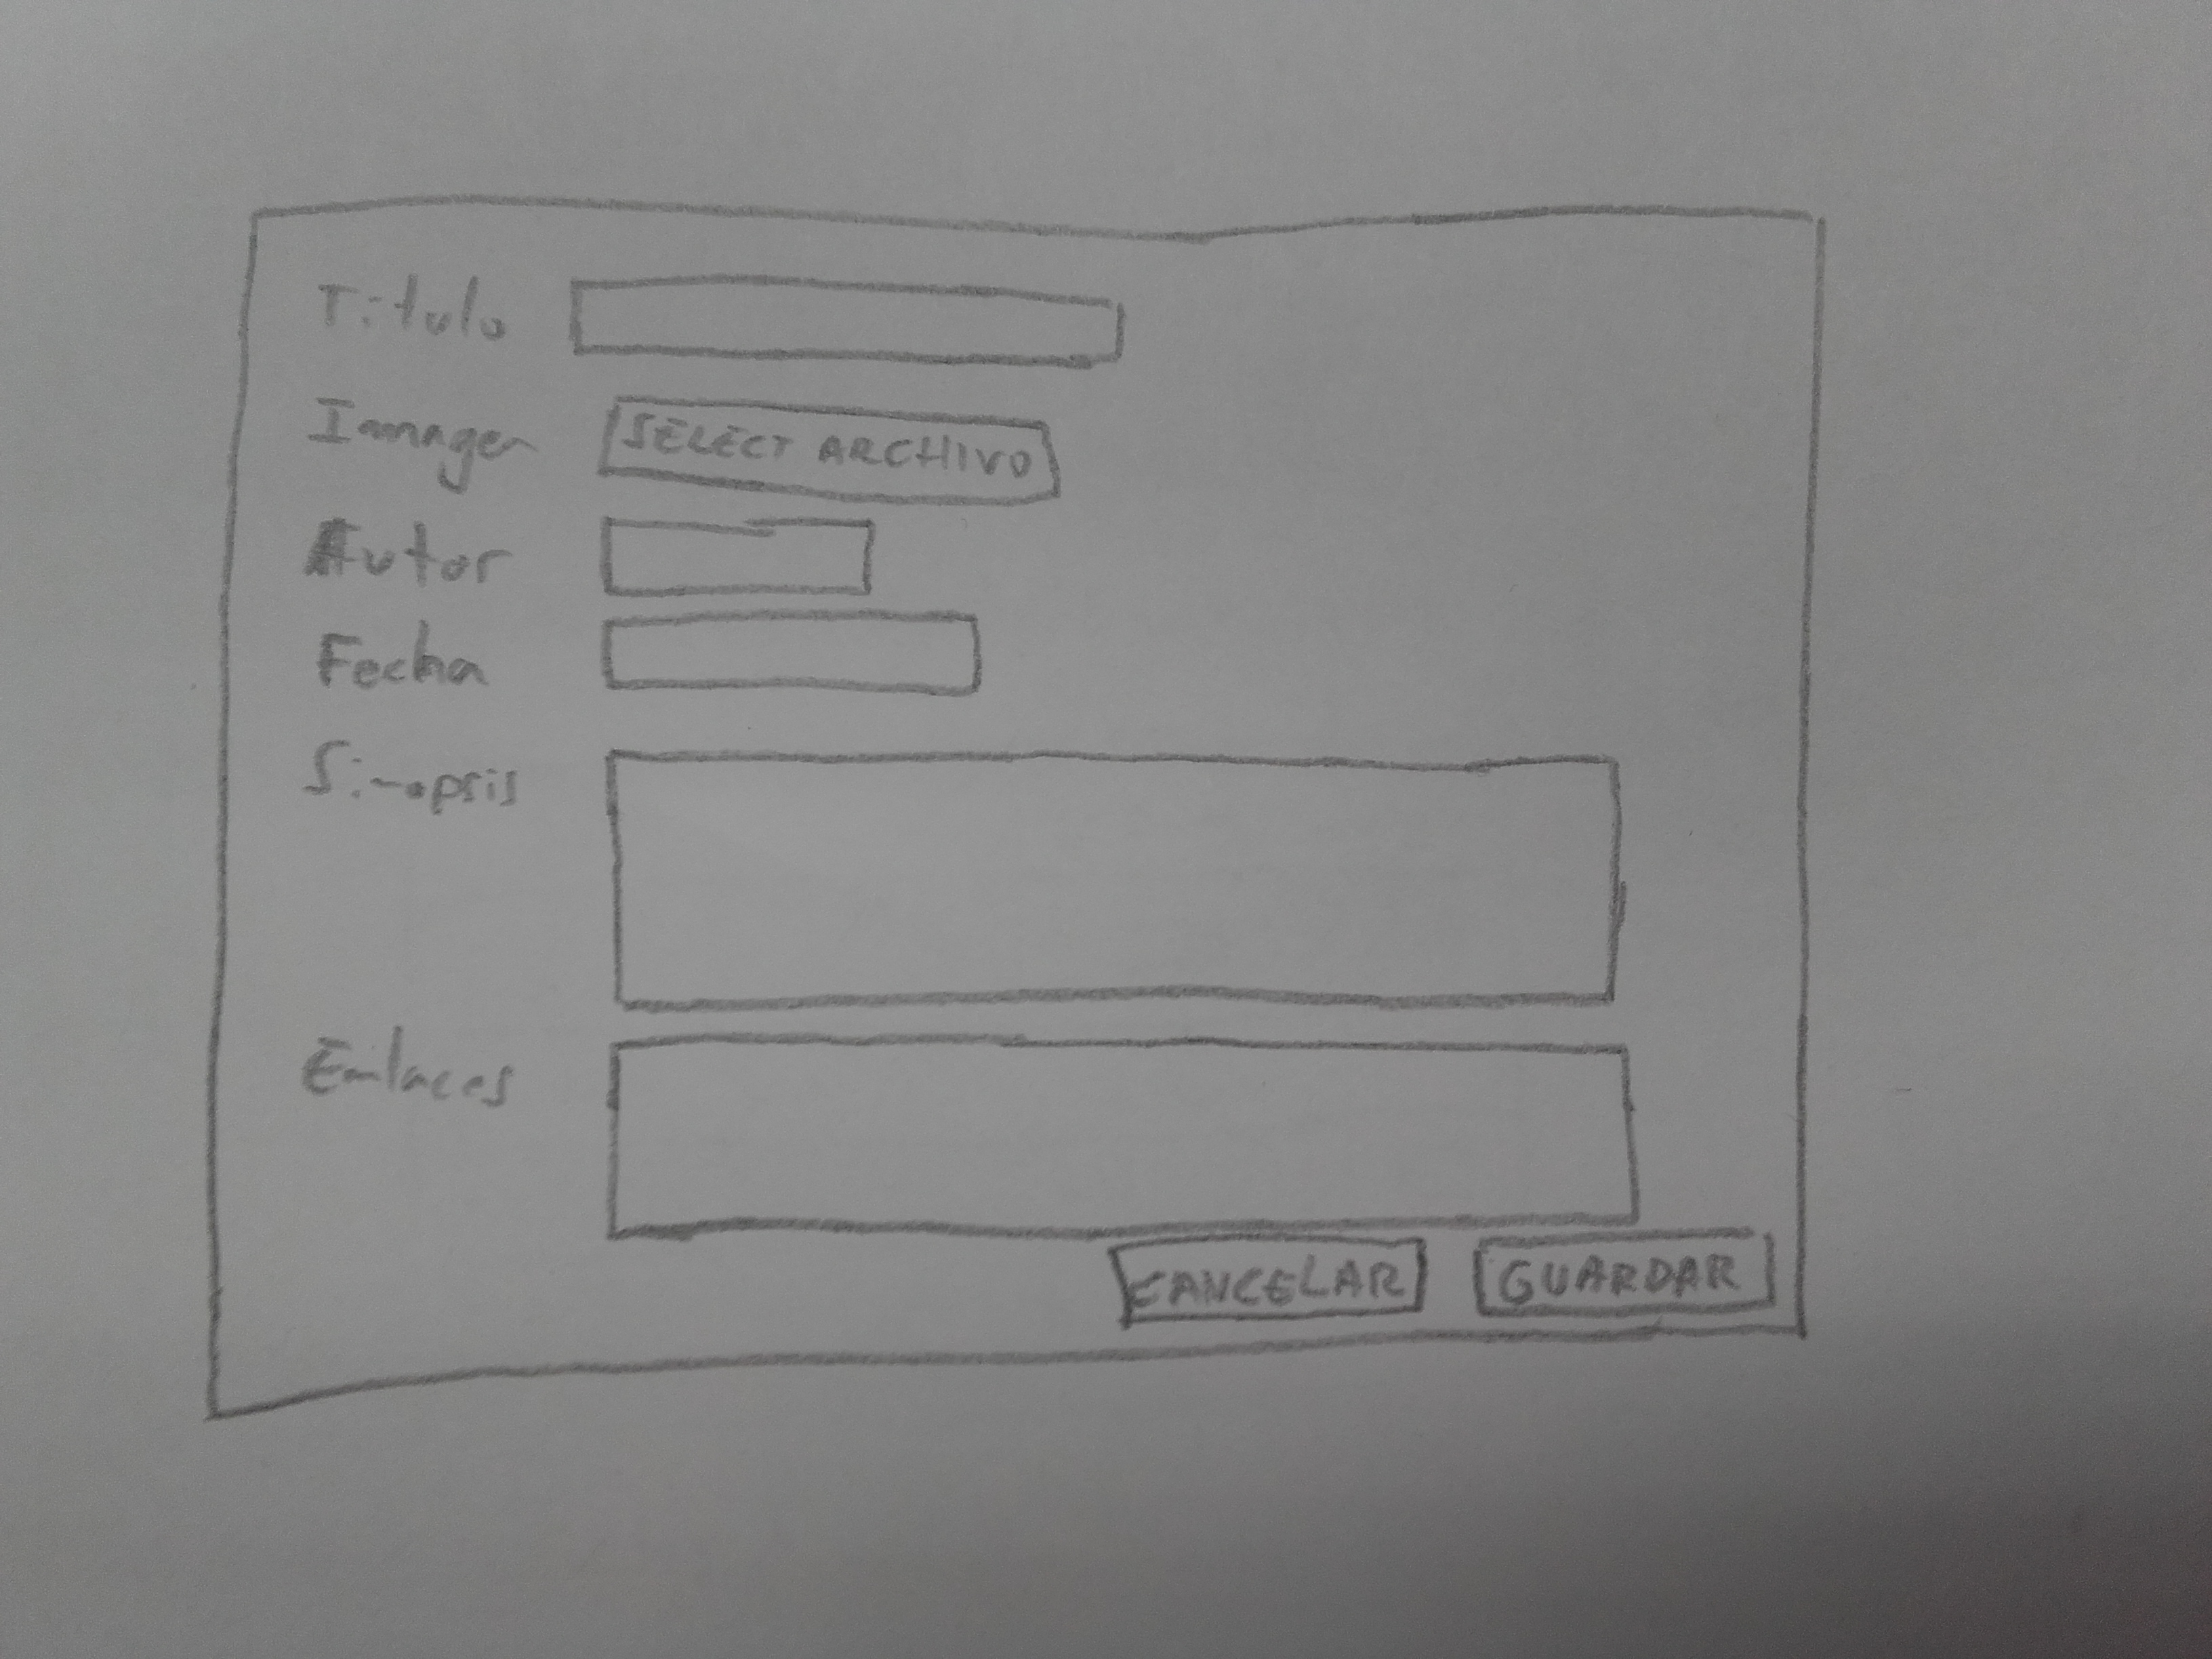 Titulo
Imagen SELECT ARCHIVO
Autor
Fecha
Sinopsis
Enlaces
CANCELAR GUARDAR